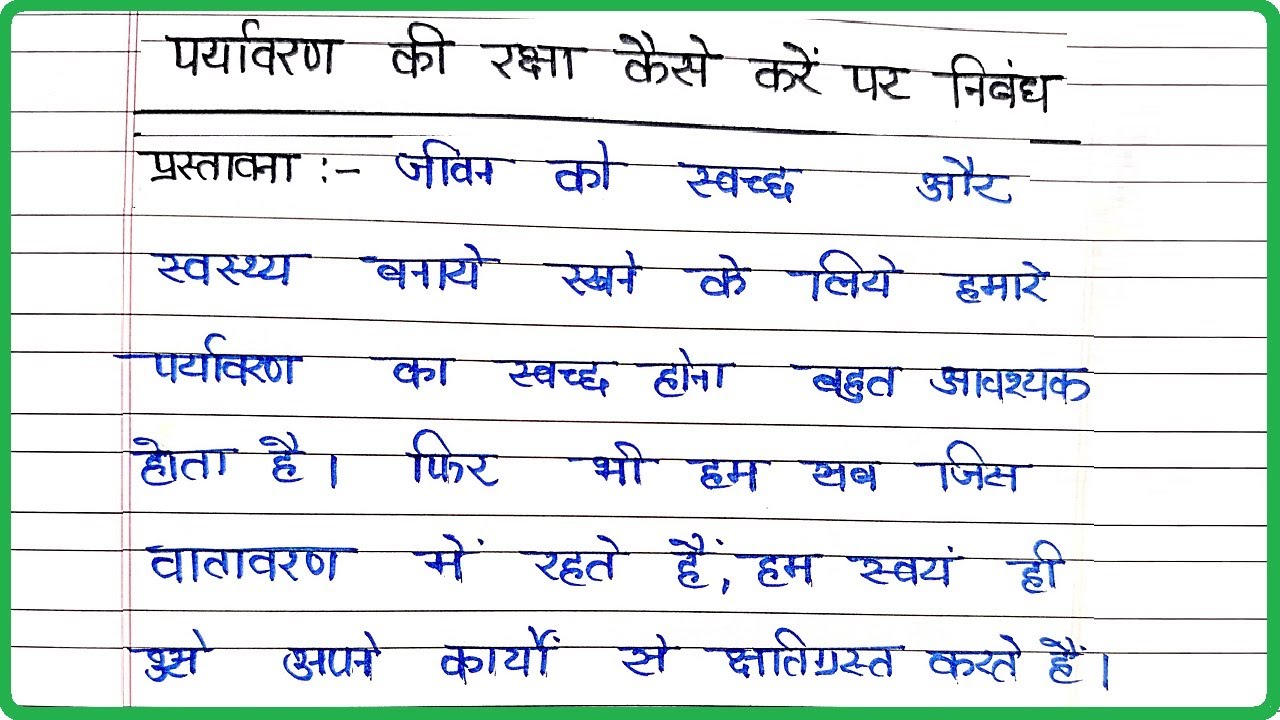 पर्यावरण की रक्षा कैसे करें पर निबंध
प्रस्तावना :- जीवन को स्वच्छ और
स्वस्थ्य बनाये रखने के लिये हमारे
पर्यावरण का स्वच्छ होना बहुत आवश्यक
होता है। फिर भी हम सब जिस
वातावरण में रहते हैं, हम स्वयं ही
उसे अपने कार्यों से क्षतिग्रस्त करते हैं।